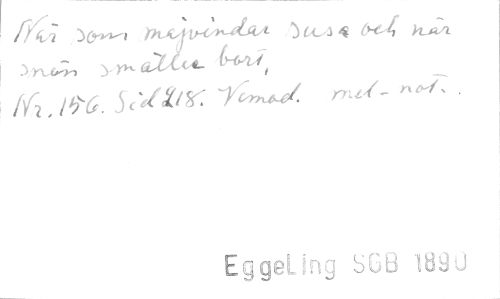 När som majvindar susa och när
snön smälter bort,
Nr. 156. Sid 218. Vemod. mel-not-.
EggeLing SGB 1890